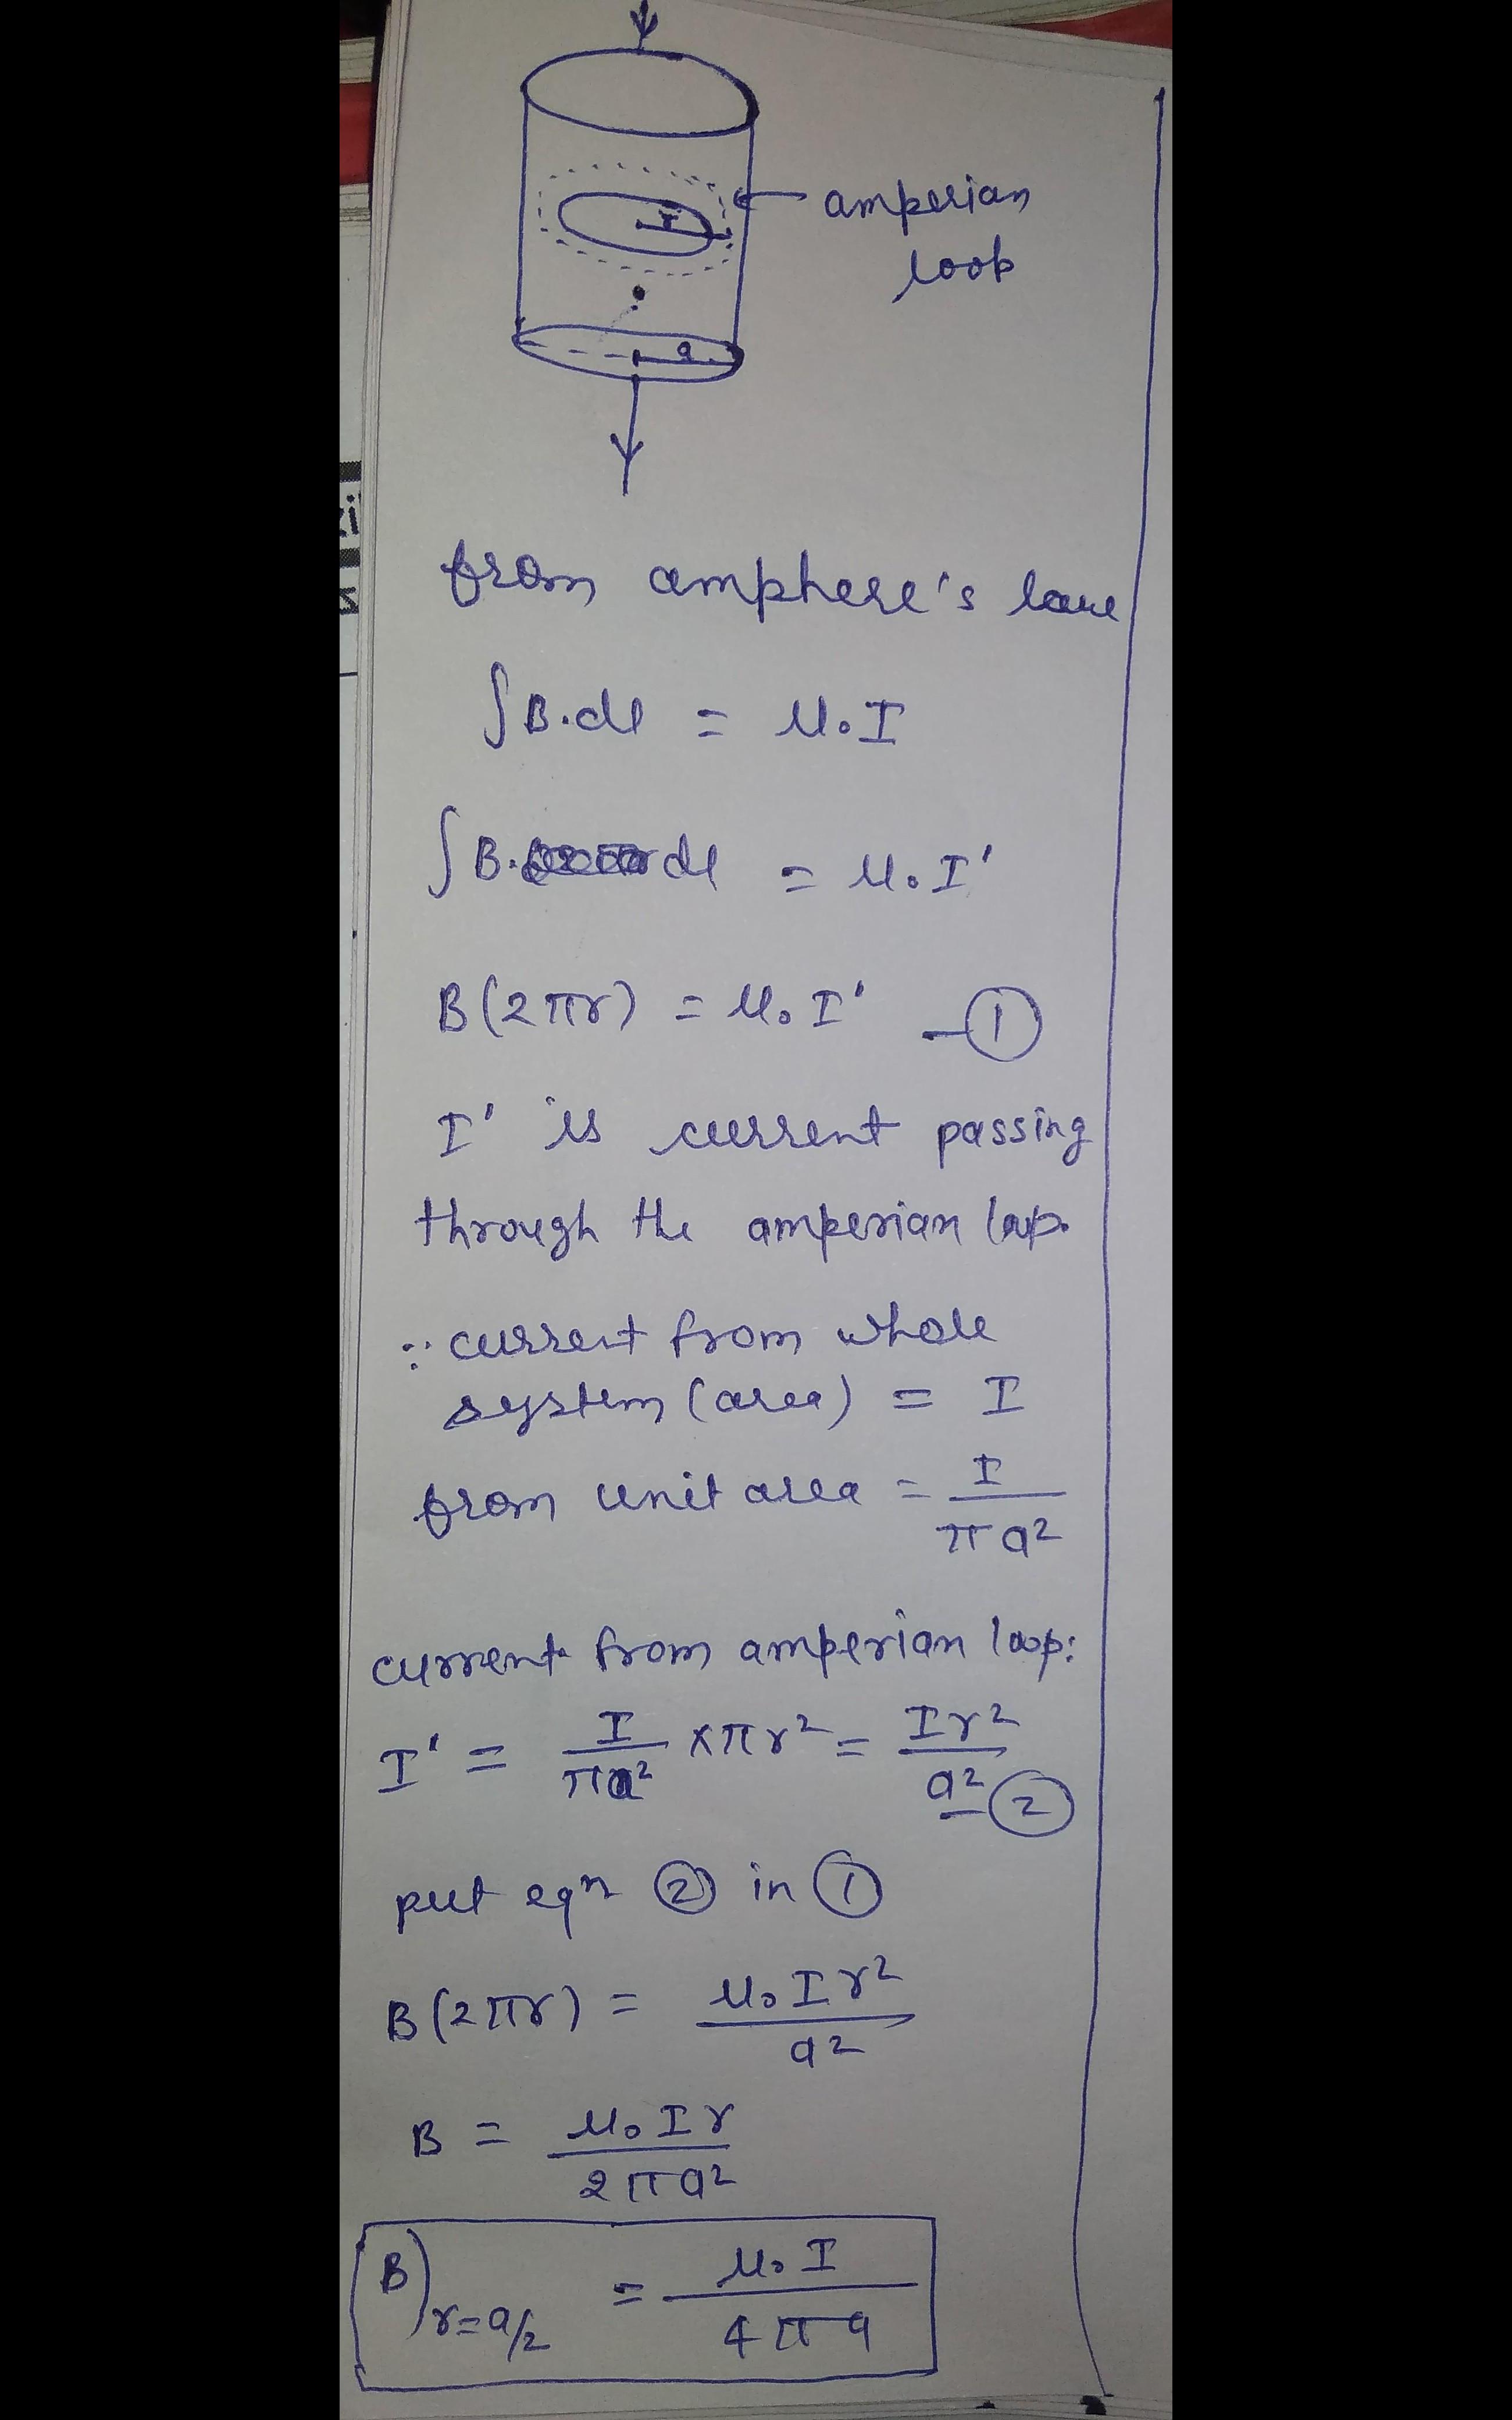 r
amperian
loop
a
from amphere's lawe
∫B.dl = μ₀I
∫B. dl = μ₀I'
B(2πr) = μ₀I' —①
I' is current passing
through the amperian loop.
∵ current from whole
system (area) = I
from unit area = I/πa²
current from amperian loop:
I' = I/πa² ×πr² = Ir²/a² —②
put eqn ② in ①
B(2πr) = μ₀Ir²/a²
B = μ₀Ir/2πa²
B)r=a/2 = μ₀I/4πa